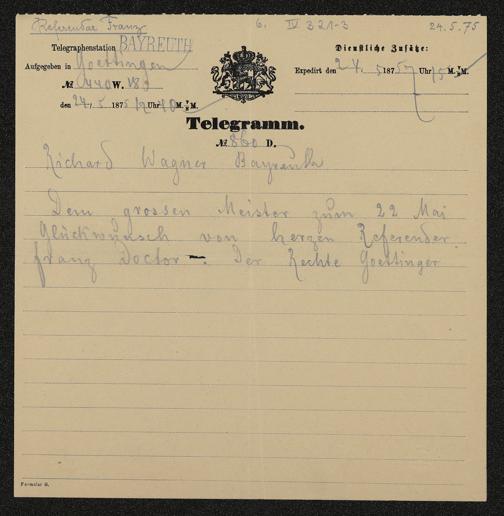 Referendar Franz 6. IV 321-3 24.5.75
Telegraphenstation BAYREUTH
Dienstliche Zusätze:
Aufgegeben in Goettingen
Expedirt den 24. 5 1875 7 Uhr 15 M. M.
№ 440 W. 18
den 24. 5. 1875 12 Uhr 40 M. M.
Telegramm.
№ 860 D.
Richard Wagner Bayreuth
Dem grossen Meister zum 22 Mai
Glückwunsch von herzen Referender
franz Doctor -. Der Rechte Goettinger
Formular G.